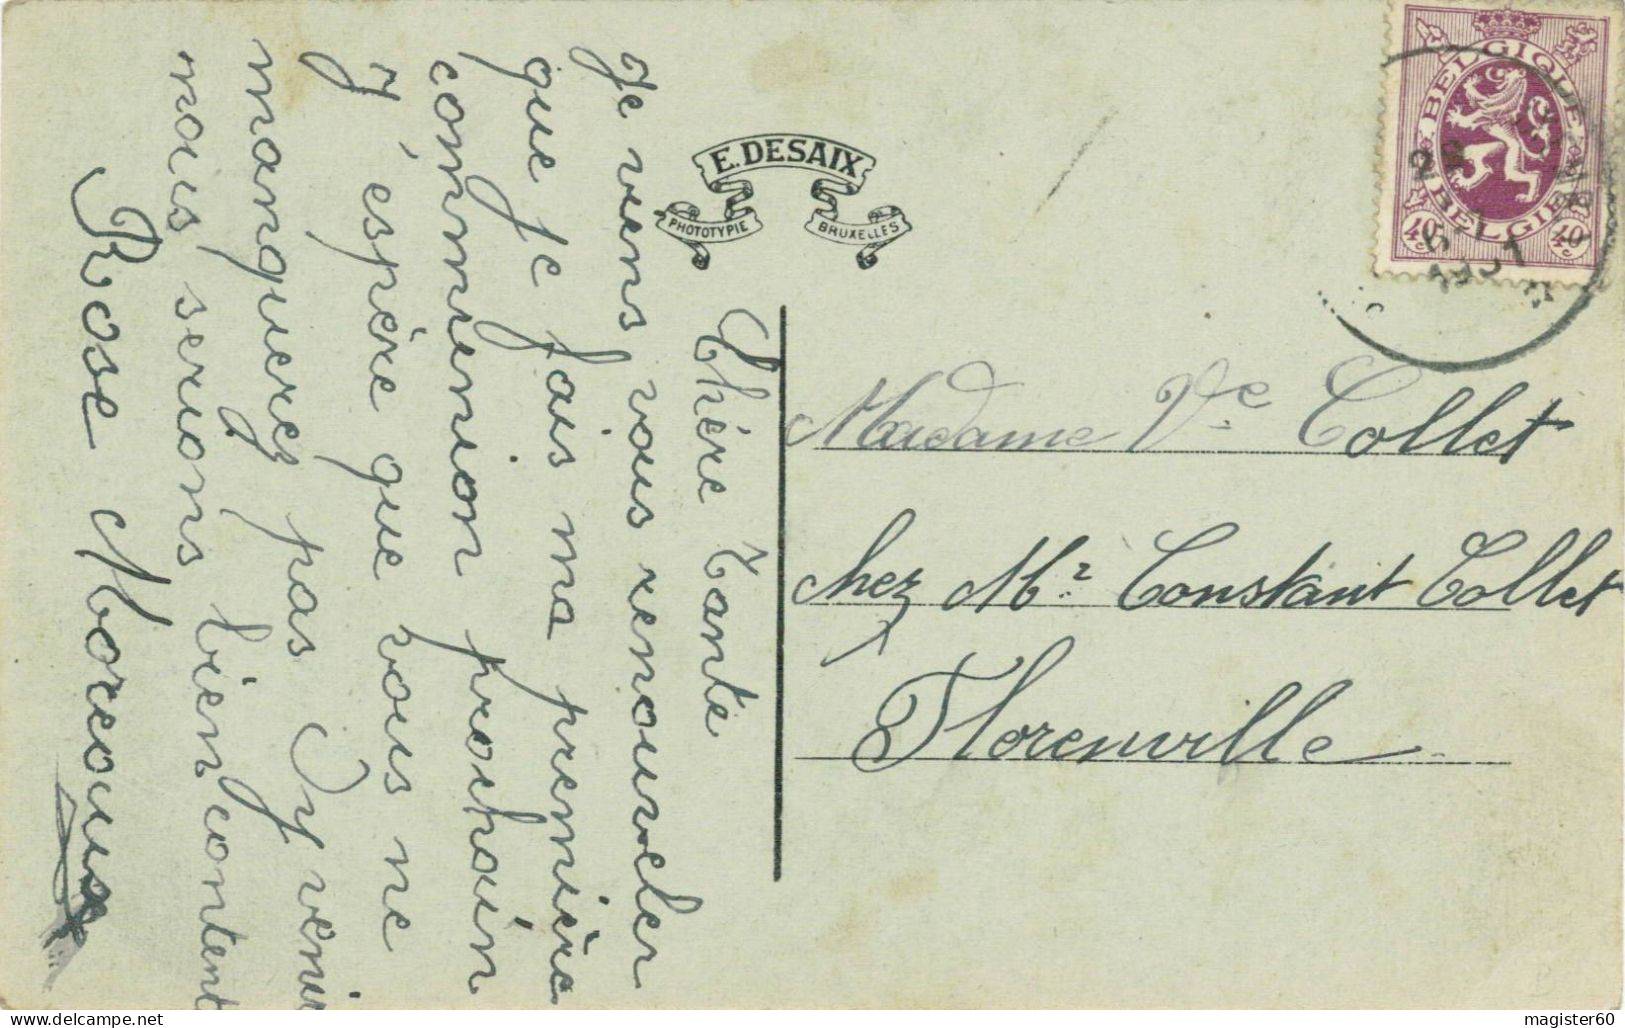 E. DESAIX
PHOTOTYPIE
BRUXELLES
BELGIQUE
BELGIE
40c
40c
1931
Chère Tante
Je viens vous renouveler
que je fais ma première
communion prochain
J'espère que vous ne
manquerez pas d'y venir
nous serions bien content
Rose Morcoux
Madame Vve Collet
chez Mr Constant Collet
Florenville
magister60